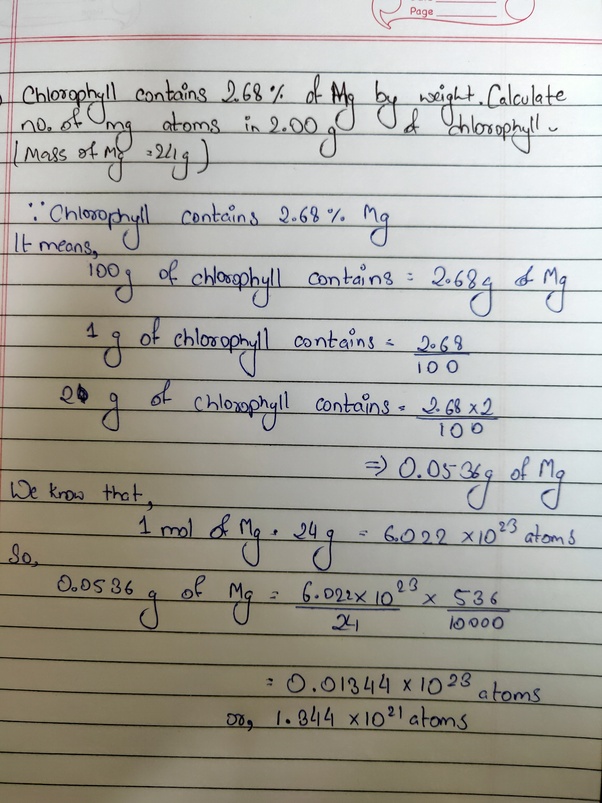 Page
Chlorophyll contains 2.68% of Mg by weight. Calculate
no. of mg atoms in 2.00g of chlorophyll.
(Mass of Mg = 24g)
∵ Chlorophyll contains 2.68% Mg
It means,
100g of chlorophyll contains = 2.68g of Mg
1 g of chlorophyll contains = 2.68/100
2 g of chlorophyll contains = 2.68 × 2/100
⇒ 0.0536g of Mg
We know that,
1 mol of Mg = 24 g = 6.022 × 10²³ atoms
So,
0.0536 g of Mg = 6.022 × 10²³/24 × 536/10000
= 0.01344 × 10²³ atoms
or, 1.344 × 10²¹ atoms